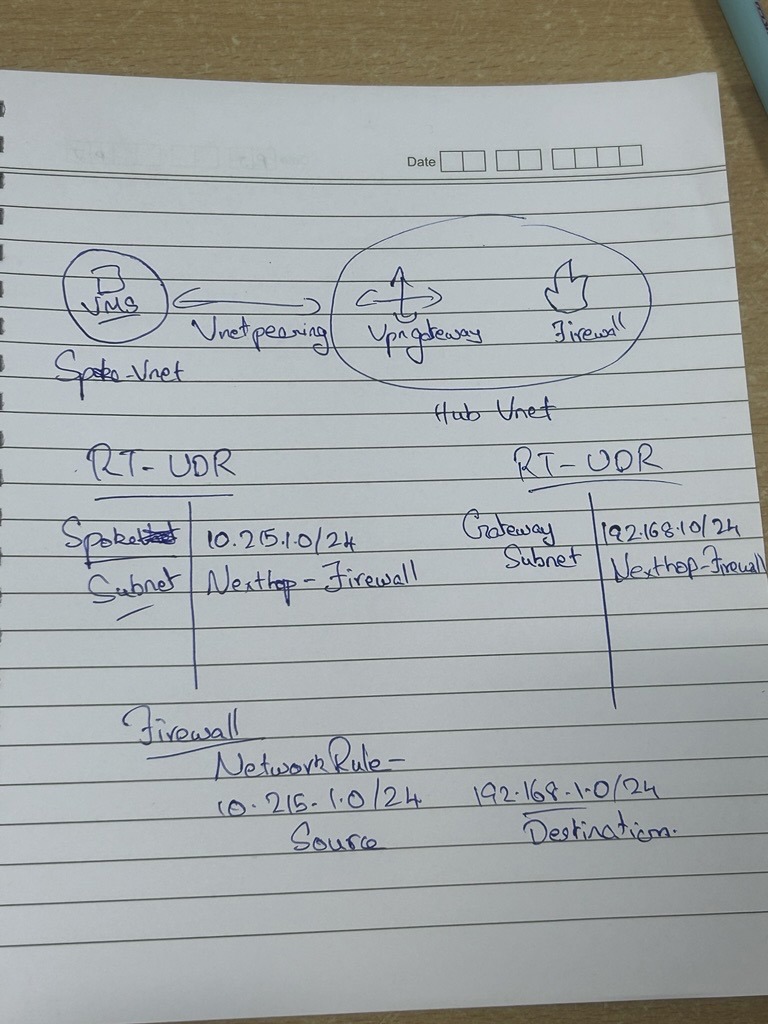 Date
VMS
Vnet peering
Vpn gateway
Firewall
Spoke-Vnet
Hub Vnet
RT-UDR
RT-UDR
Spoke
Subnet
10.215.1.0/24
Nexthop-Firewall
Gateway
Subnet
192.168.10/24
Nexthop-Firewall
Firewall
Network Rule-
10.215.1.0/24 192.168.1.0/24
Source Destination.